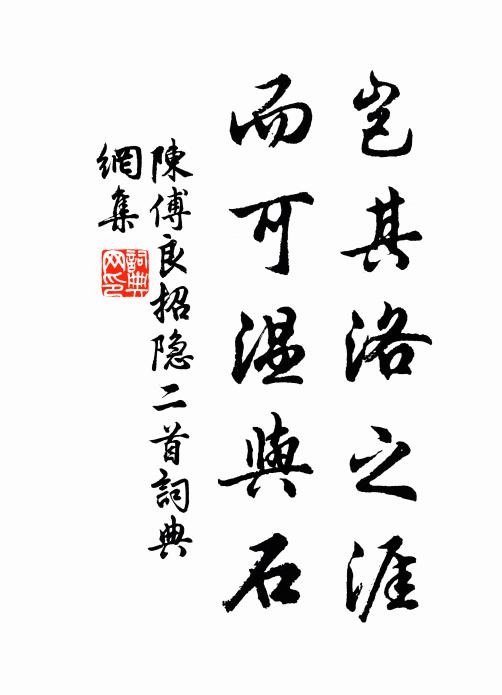 豈其洛之涯
而可温與石
陳傅良招隐二首詞典
網集
詞典
网印